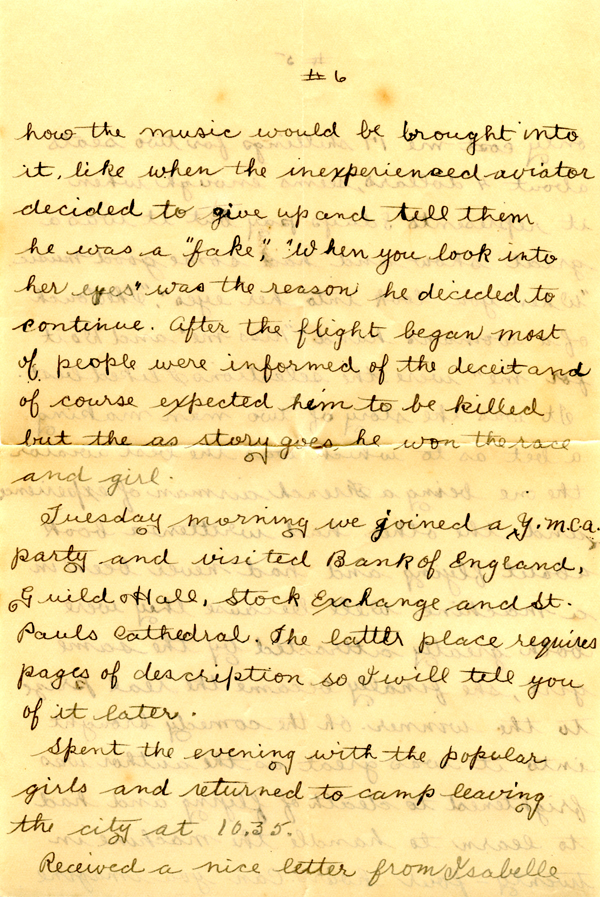 # 6
how the music would be brought into
it, like when the inexperienced aviator
decided to give up and tell them
he was a "fake", "When you look into
her eyes" was the reason he decided to
continue. After the flight began most
of people were informed of the deceit and
of course expected him to be killed
but the as story goes, he won the race
and girl.
Tuesday morning we joined a Y.M.C.A.
party and visited Bank of England,
Guild Hall, Stock Exchange and St.
Pauls Cathedral. The latter place requires
pages of description so I will tell you
of it later.
Spent the evening with the popular
girls and returned to camp leaving
the city at 10.35.
Received a nice letter from Isabelle